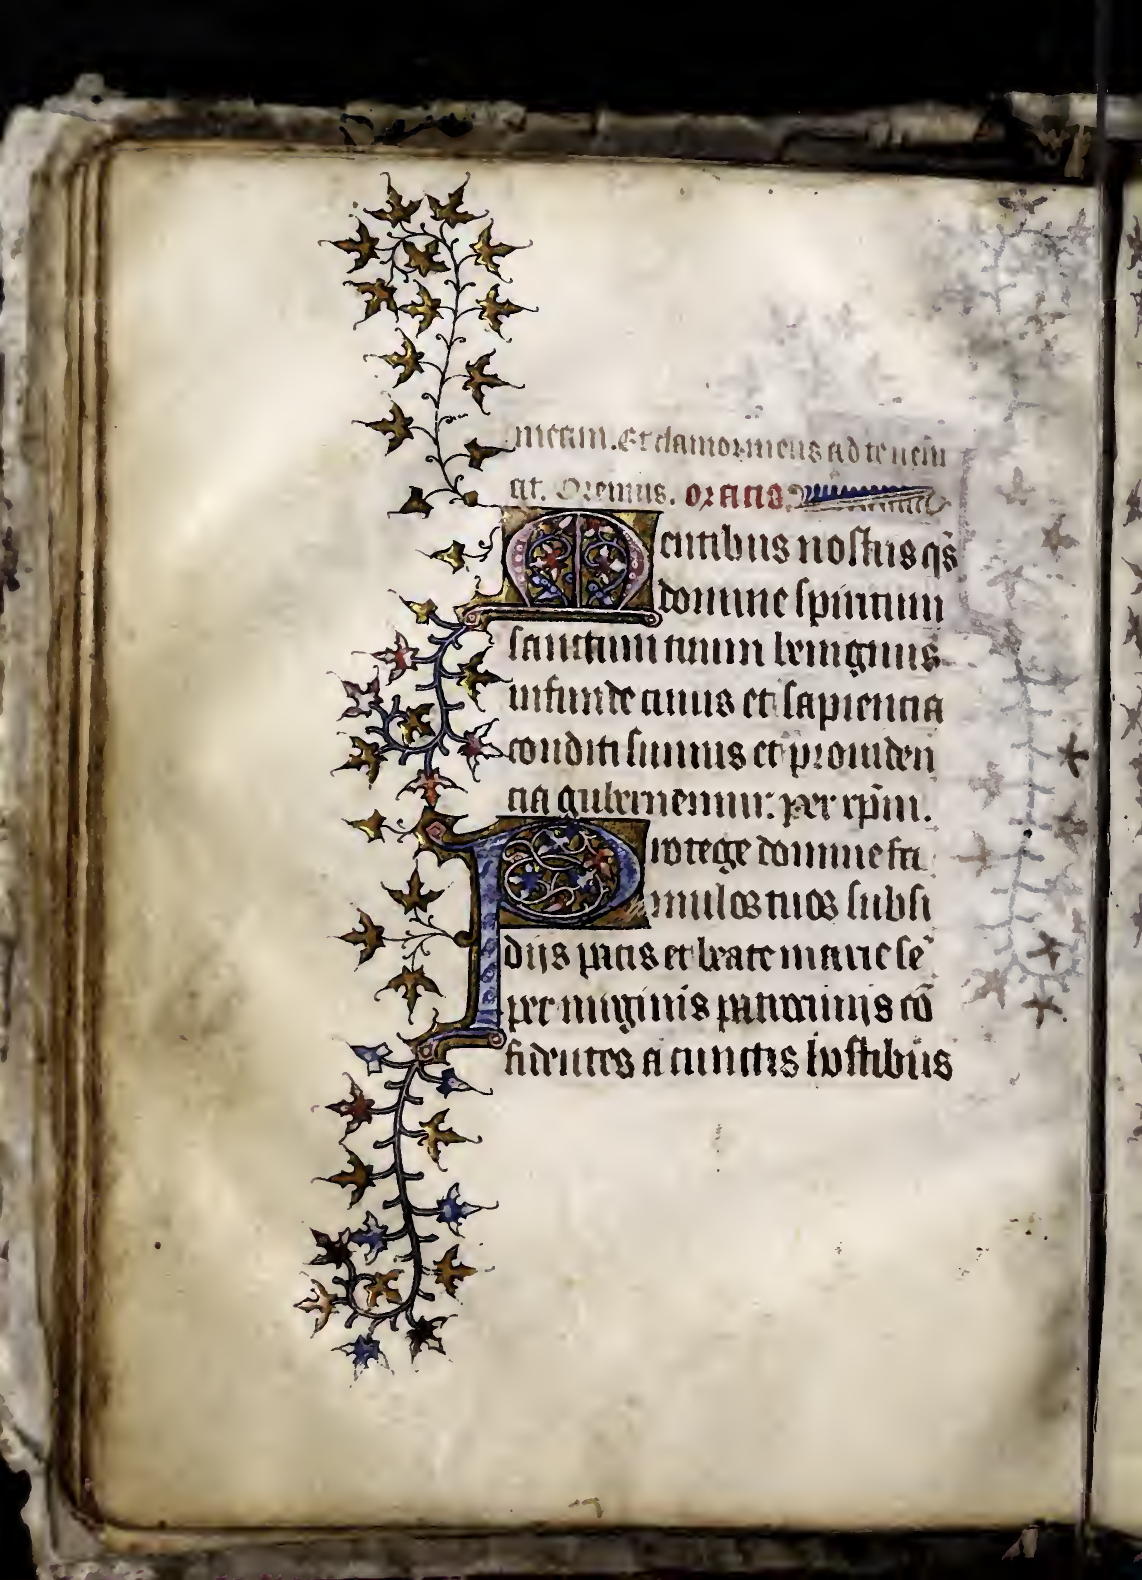 meam. Et clamor meus ad te veni
at. Oremus. oracio.
Mentibus nostris q̄s
domine spiritum
sanctum tuum benignus
infunde cuius et sapiencia
conditi sumus et prouiden
cia gubernemur. per xp̄m.
Protege domine fa
mulos tuos subsi
dijs pacis et beate marie se
per uirginis patrocinijs cō
fidentes a cunctis hostibus